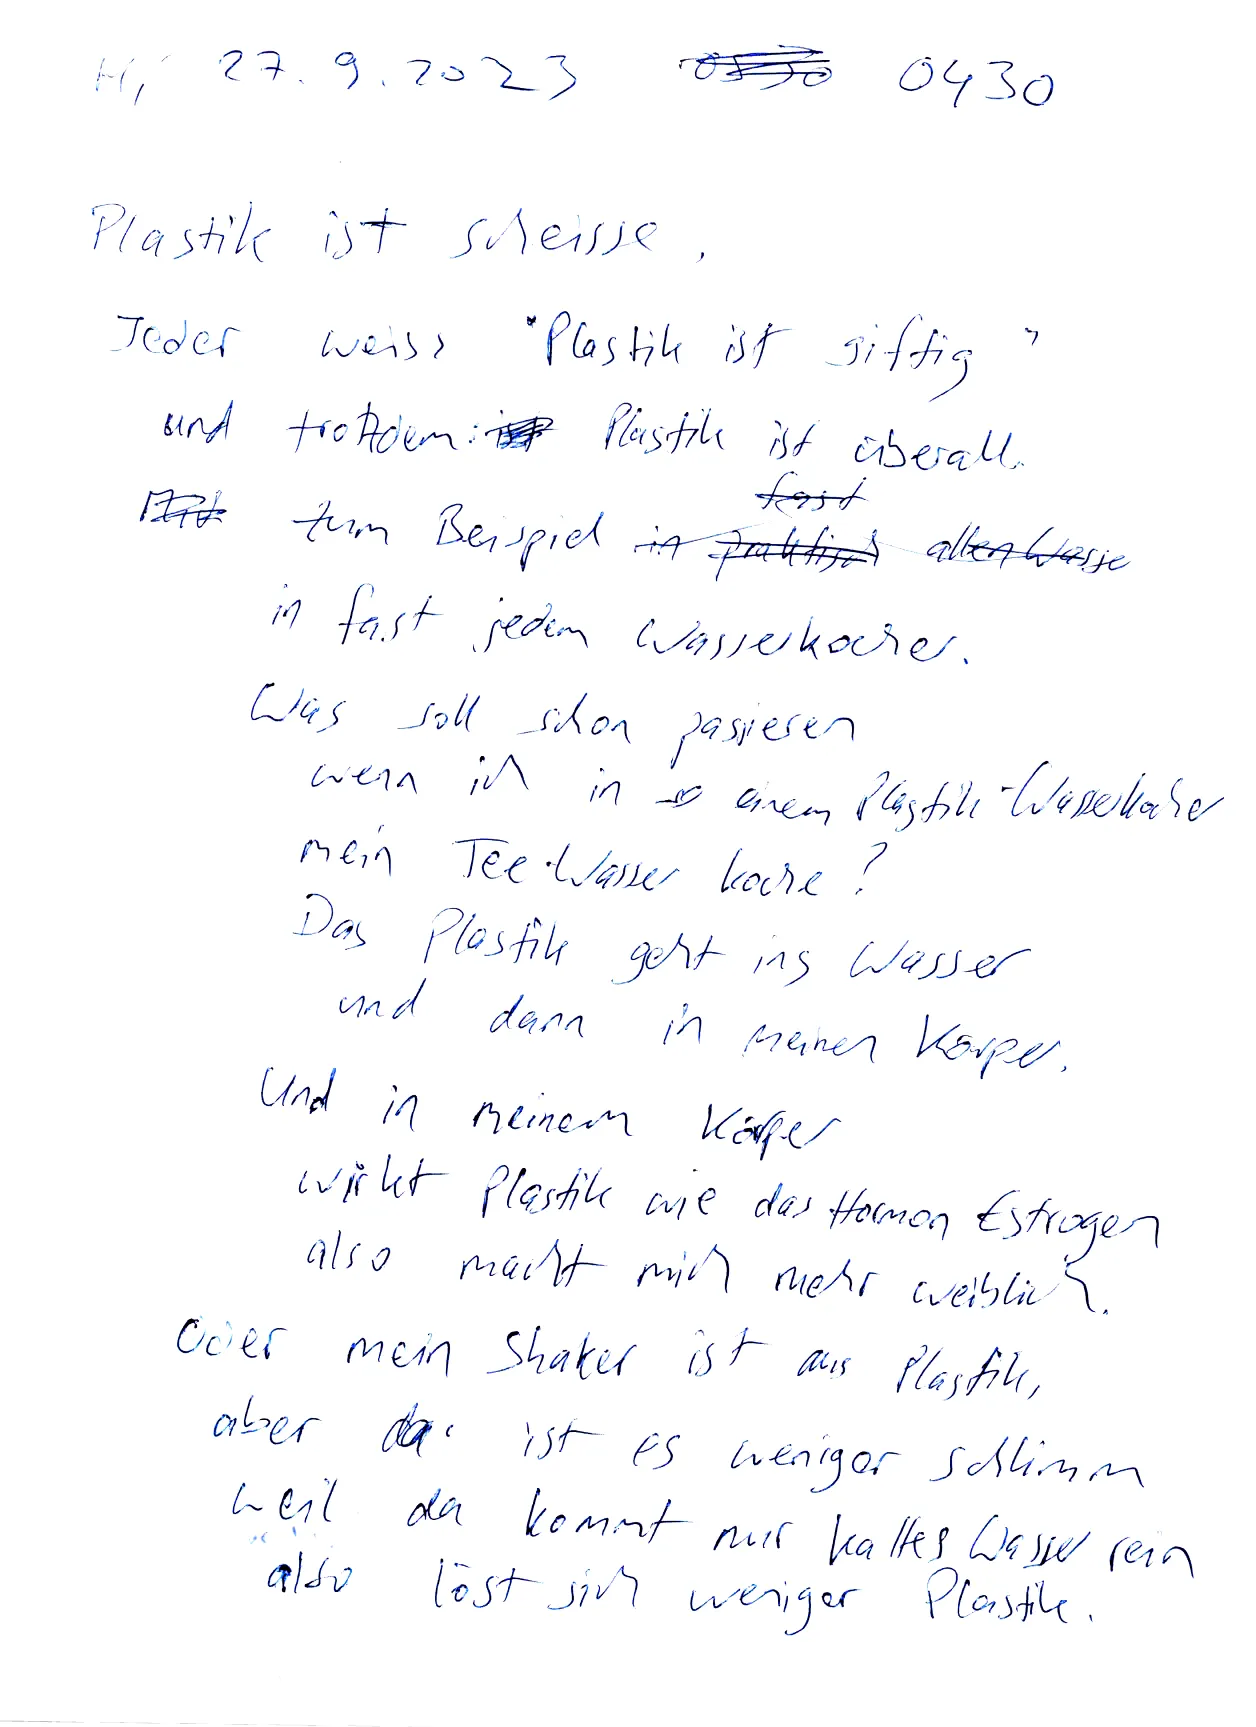 Hi, 27.9.2023 0530 0430
Plastik ist scheisse.
Jeder weiss "Plastik ist giftig"
und trotzdem: ist Plastik ist überall.
fast
zum Beispiel in praktisch allen Wasse
in fast jedem Wasserkocher.
Was soll schon passieren
wenn ich in einem Plastik-Wasserkocher
mein Tee-Wasser koche?
Das Plastik geht ins Wasser
und dann in meinen Körper.
Und in meinem Körper
wirkt Plastik wie das Hormon Estrogen
also macht mich mehr weiblich.
Oder mein Shaker ist aus Plastik,
aber da ist es weniger schlimm
weil da kommt nur kaltes Wasser rein
also löst sich weniger Plastik.